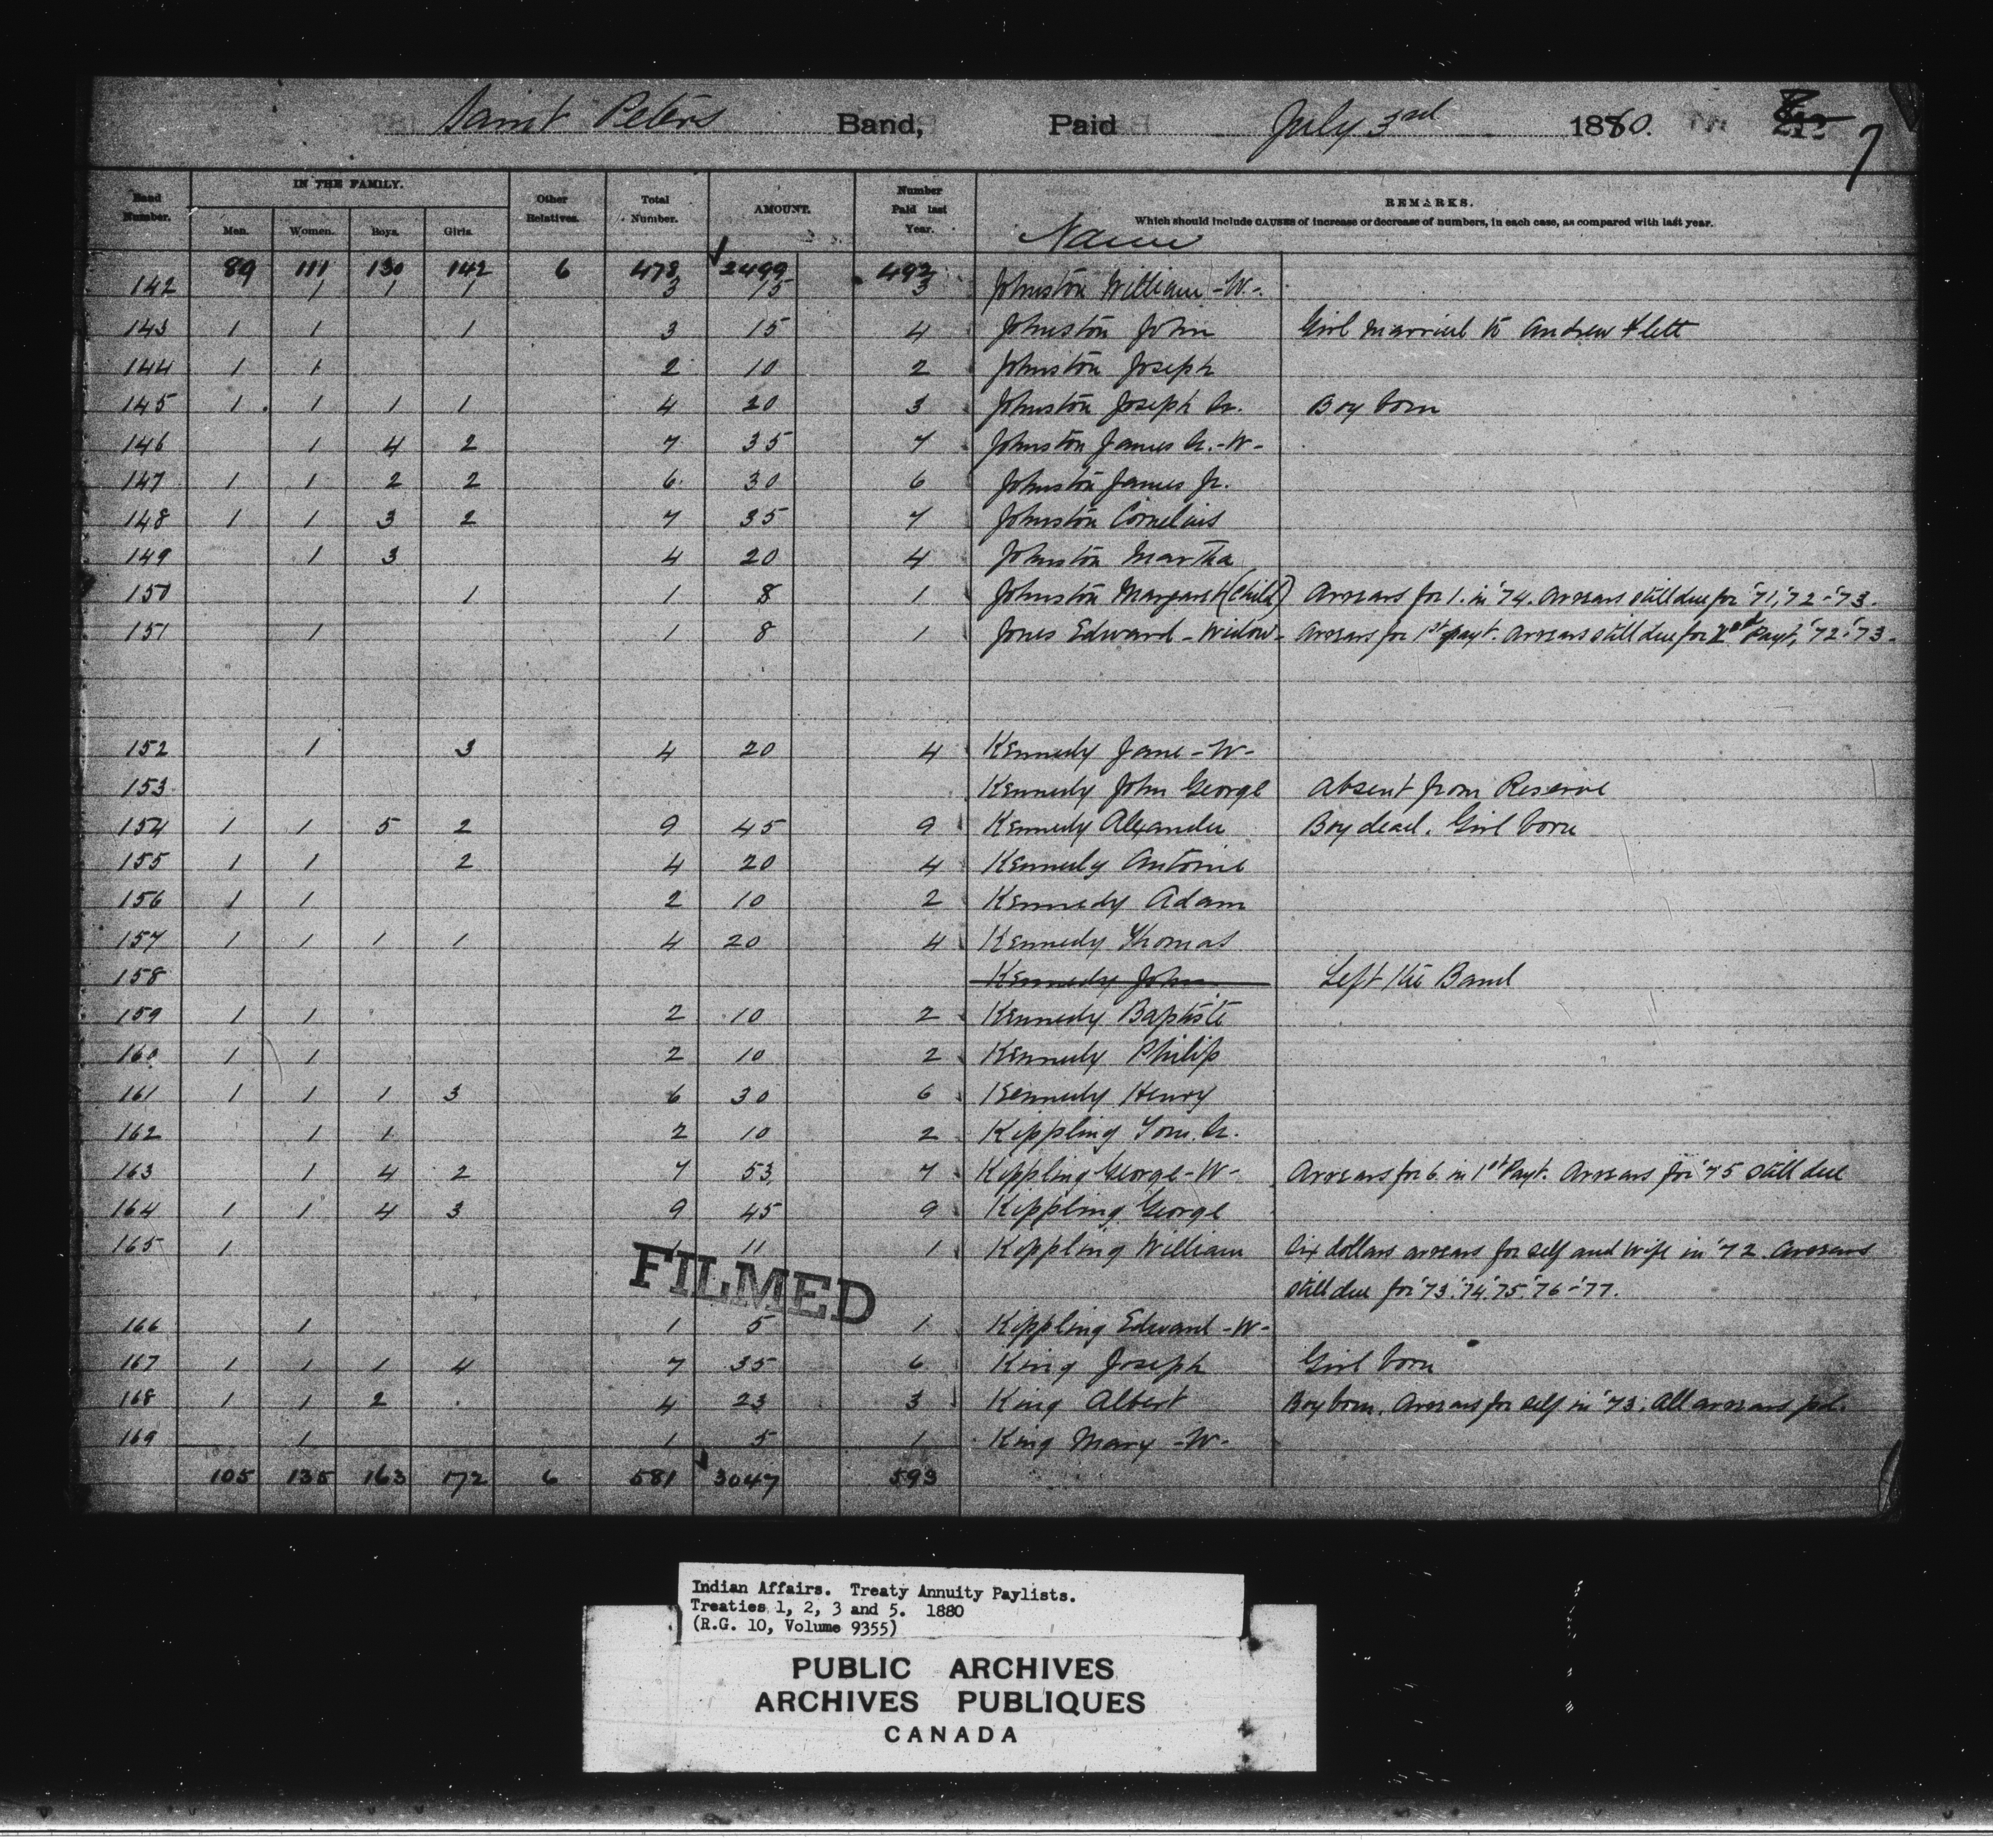 Saint Peters Band, Paid July 3rd 1880. 7
Band Number. IN THE FAMILY. Men. Women. Boys. Girls. Other Relatives. Total Number. AMOUNT. Number Paid last Year. Name REMARKS. Which should include CAUSES of increase or decrease of numbers, in each case, as compared with last year.
89 111 130 142 6 478 2499 492
142 1 1 1 3 15 3 Johnston William -W-
143 1 1 1 3 15 4 Johnston John Girl married to Andrew Flett
144 1 1 2 10 2 Johnston Joseph
145 1 1 1 1 4 20 3 Johnston Joseph Sr. Boy born
146 1 4 2 7 35 7 Johnston James Sr. -W-
147 1 1 2 2 6 30 6 Johnston James Jr.
148 1 1 3 2 7 35 7 Johnston Cornelius
149 1 3 4 20 4 Johnston Martha
150 1 1 8 1 Johnston Margaret (Child) Arrears for 1. in '74. Arrears still due for '71, '72 - '73.
151 1 1 8 1 Jones Edward - Widow - Arrears for 1st payt. Arrears still due for 2nd Payt, '72 - '73 -
152 1 3 4 20 4 Kennedy Jane -W-
153 Kennedy John George Absent from Reserve
154 1 1 5 2 9 45 9 Kennedy Alexander Boy dead. Girl born
155 1 1 2 4 20 4 Kennedy Antoine
156 1 1 2 10 2 Kennedy Adam
157 1 1 1 1 4 20 4 Kennedy Thomas
158 Kennedy John Left the Band
159 1 1 2 10 2 Kennedy Baptiste
160 1 1 2 10 2 Kennedy Philip
161 1 1 1 3 6 30 6 Kennedy Henry
162 1 1 2 10 2 Kippling Tom. Sr.
163 1 4 2 7 53 7 Kippling George -W- Arrears for 6 in 1st Payt. Arrears for '75 still due
164 1 1 4 3 9 45 9 Kippling George
165 1 1 11 1 Kippling William Six dollars arrears for self and wife in '72. Arrears
still due for '73 '74 '75 '76 - '77.
FILMED
166 1 1 5 1 Kippling Edward -W-
167 1 1 1 4 7 35 6 King Joseph Girl born
168 1 1 2 4 23 3 King Albert Boy born. Arrears for self in '73. All arrears pd.
169 1 1 5 1 King Mary -W-
105 135 163 172 6 581 3047 593
Indian Affairs. Treaty Annuity Paylists.
Treaties 1, 2, 3 and 5. 1880
(R.G. 10, Volume 9355)
PUBLIC ARCHIVES
ARCHIVES PUBLIQUES
CANADA